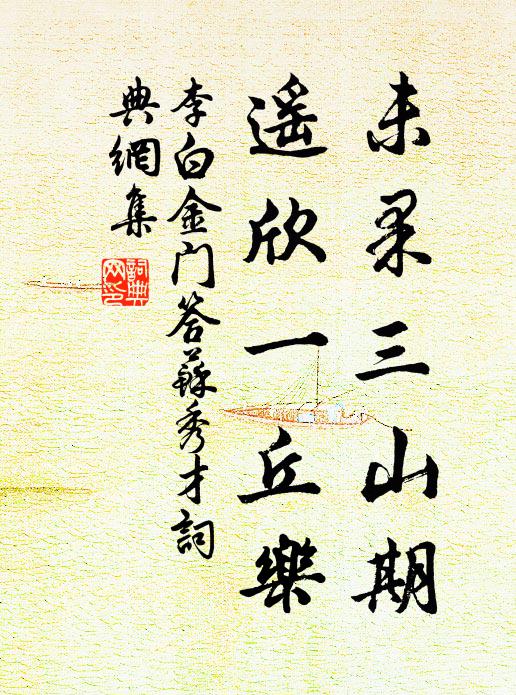 未果三山期
遥欣一丘樂
李白金门答蘇秀才詞
典網集
詞典网印